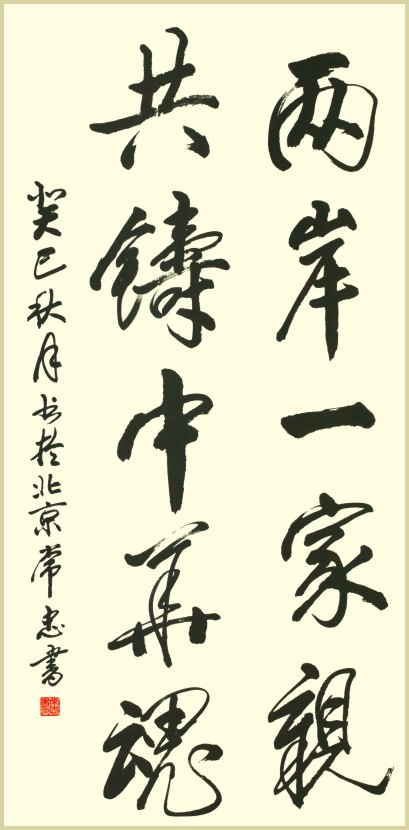 两岸一家親
共鑄中华魂
癸巳秋月书於北京常忠書